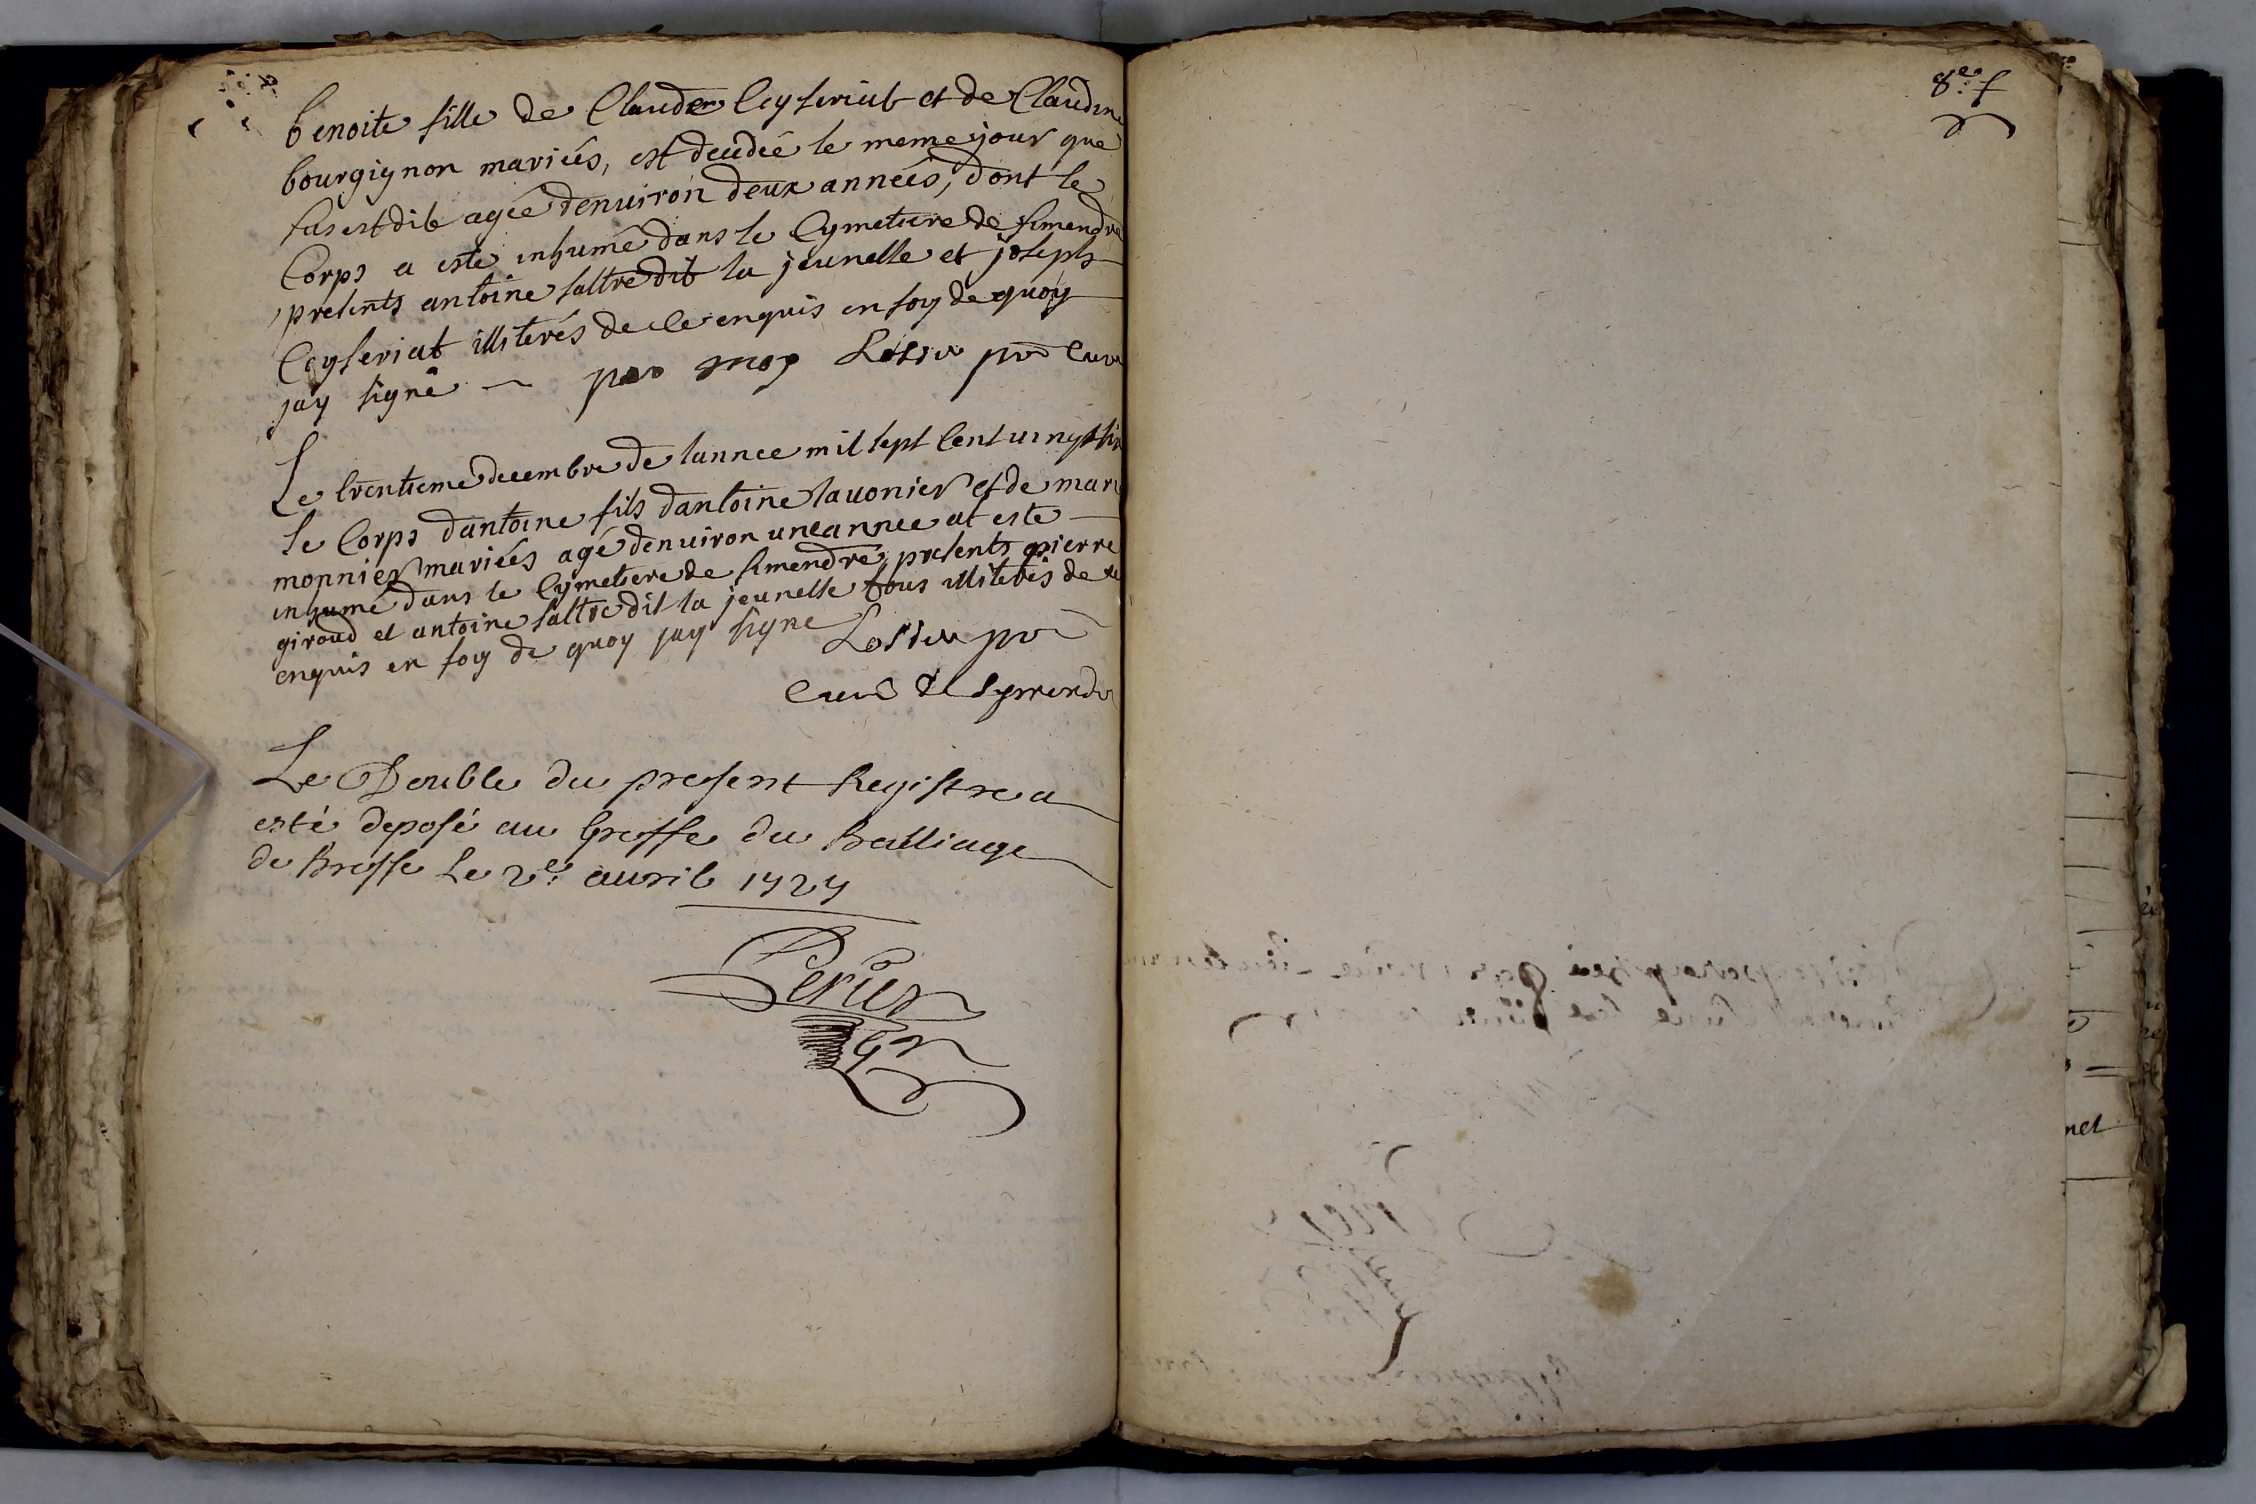 benoite fille de Claude Ceyseriat et de Claudine
bourgignon mariés, est decedée le meme jour que
sus est dit agée denuiron deux années, dont le
Corps a esté inhumé dans le Cymetiere de simendre
presents antoine saltre dit la jeunesse et joseph
Ceyseriat illiterés de ce enquis en foy de quoy
jay signé par moy pre Curé
Le trentieme decembre de lannee mil sept Cent uingt six
le Corps dantoine fils dantoine lauonier et de marie
monnier mariées agé denuiron une annee at este
inhumé dans le Cymetiere de simendre, presents pierre
giroud et antoine saltre dit la jeunesse tous illiterés de ce
enquis en foy de quoy jay signe
pre
Curé de Symendre
Le Double du present Registre a
esté deposé au Greffe du Bailliage
de Bresse Le 2e. auril 1727
8e. f